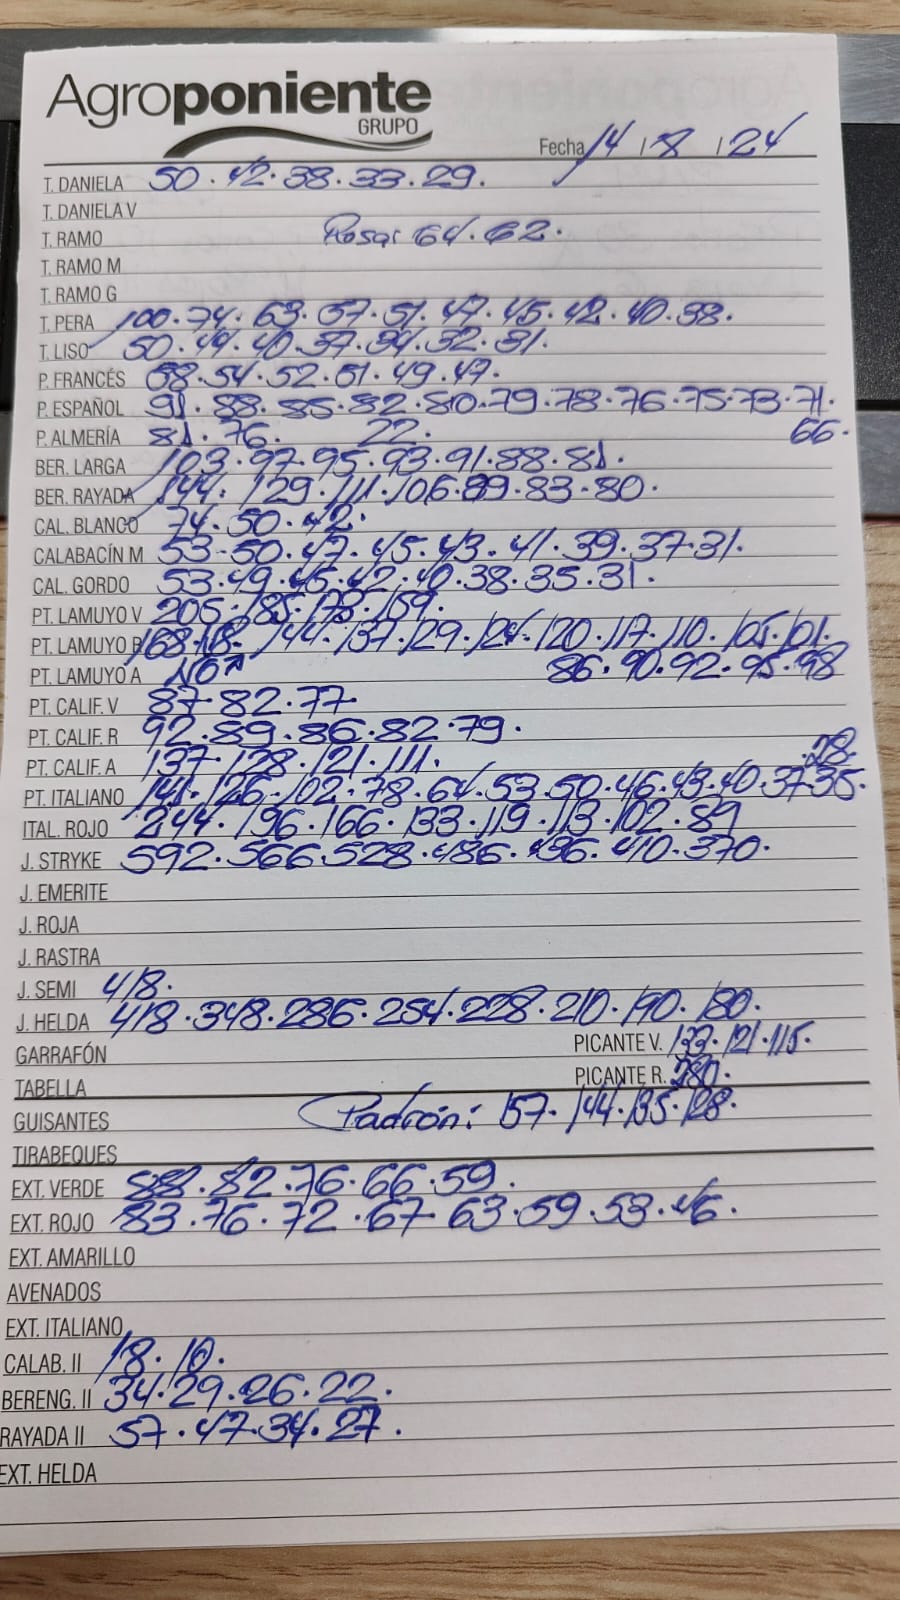 Agroponiente
GRUPO
Fecha 14 / 8 / 24
T. DANIELA 50 . 42 . 38 . 33 . 29 .
T. DANELA V
T. RAMO Rosa: 64 . 62 .
T. RAMO M
T. RAMO G
T. PERA 100 . 74 . 63 . 57 . 51 . 47 . 45 . 42 . 40 . 38 .
T. LISO 50 . 44 . 40 . 37 . 34 . 32 . 31 .
P. FRANCÉS 58 . 54 . 52 . 51 . 49 . 47 .
P. ESPAÑOL 91 . 88 . 85 . 82 . 80 . 79 . 78 . 76 . 75 . 73 . 71 .
P. ALMERÍA 81 . 76 . 22 . 66 .
BER. LARGA 103 . 97 . 95 . 93 . 91 . 88 . 81 .
BER. RAYADA 144 . 129 . 111 . 106 . 89 . 83 . 80 .
CAL. BLANCO 74 . 50 . 42 .
CALABACÍN M 53 . 50 . 47 . 45 . 43 . 41 . 39 . 37 . 31 .
CAL. GORDO 53 . 49 . 45 . 42 . 40 . 38 . 35 . 31 .
PT. LAMUYO V 205 . 185 . 173 . 159 .
PT. LAMUYO R 168 . 144 . 137 . 129 . 124 . 120 . 117 . 110 . 105 . 101 .
PT. LAMUYO A 86 . 90 . 92 . 95 . 98
PT. CALIF. V 87 . 82 . 77
PT. CALIF. R 92 . 89 . 86 . 82 . 79 .
PT. CALIF. A 137 . 128 . 121 . 111 . 28 .
PT. ITALIANO 141 . 126 . 102 . 78 . 64 . 53 . 50 . 46 . 43 . 40 . 37 . 35 .
ITAL. ROJO 244 . 196 . 166 . 133 . 119 . 113 . 102 . 89
J. STRYKE 592 . 566 . 528 . 486 . 436 . 410 . 370 .
J. EMERITE
J. ROJA
J. RASTRA
J. SEMI 418 .
J. HELDA 418 . 348 . 286 . 254 . 228 . 210 . 190 . 180 .
GARRAFÓN PICANTE V. 133 . 121 . 115 .
TABELLA PICANTE R. 280 .
GUISANTES Padrón: 157 . 144 . 135 . 128 .
TIRABEQUES
EXT. VERDE 88 . 82 . 76 . 66 . 59 .
EXT. ROJO 83 . 76 . 72 . 67 . 63 . 59 . 53 . 46 .
EXT. AMARILLO
AVENADOS
EXT. ITALIANO
CALAB. II 18 . 10 .
BERENG. II 34 . 29 . 26 . 22 .
RAYADA II 57 . 47 . 34 . 27 .
EXT. HELDA